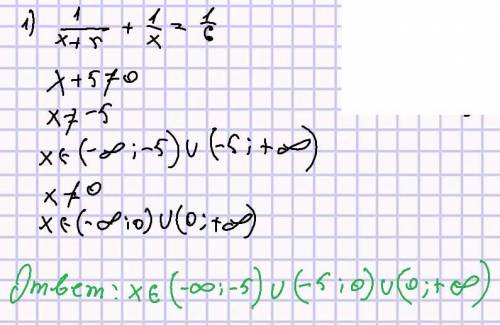 1) 1/(x+5) + 1/x = 1/6
x+5≠0
x≠-5
x∈(-∞;-5)∪(-5;+∞)
x≠0
x∈(-∞;0)∪(0;+∞)
Ответ: x∈(-∞;-5)∪(-5;0)∪(0;+∞)